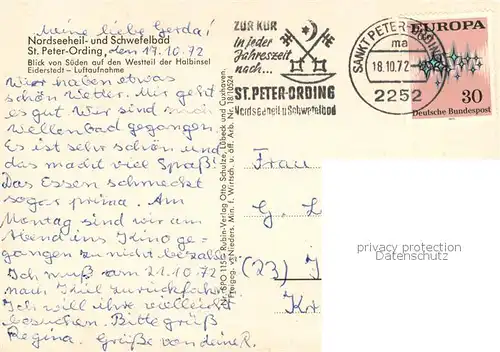 Meine liebe Gerda!
Nordseeheil- und Schwefelbad
St. Peter-Ording, den 17.10.72
Blick von Süden auf den Westteil der Halbinsel
Eiderstedt – Luftaufnahme
Wir haben etwas
schön Wetter. Mir geht
es gut. Wir sind
Wellenbad gegangen.
Es ist sehr schön und
das macht viel Spaß.
Das Essen schmeckt
sogar prima. Am
Montag sind wir am
Abend ins Kino ge-
gangen zu nicht bezahlt.
Ich muß am 21.10.72
nach Kiel zurückfahren.
Ich will ihre vielleicht
besuchen. Bitte grüß
Regina. Grüße von deine R.
Nr. SPO 1155 Rubin-Verlag Otto Schulze, Lübeck und Cuxhaven
Freigeg. v. Nieders. Min. f. Wirtsch. u. öff. Arb. Nr. 18/10524
ZUR KUR
in jeder
Jahreszeit
nach...
ST. PETER-ORDING
Nordseeheil u Schwefelbad
SANKT PETER-ORDING
ma
18.10.72
2252
EUROPA
30
Deutsche Bundespost
Frau
G. L
(23) I
Kr
privacy protection
Datenschutz